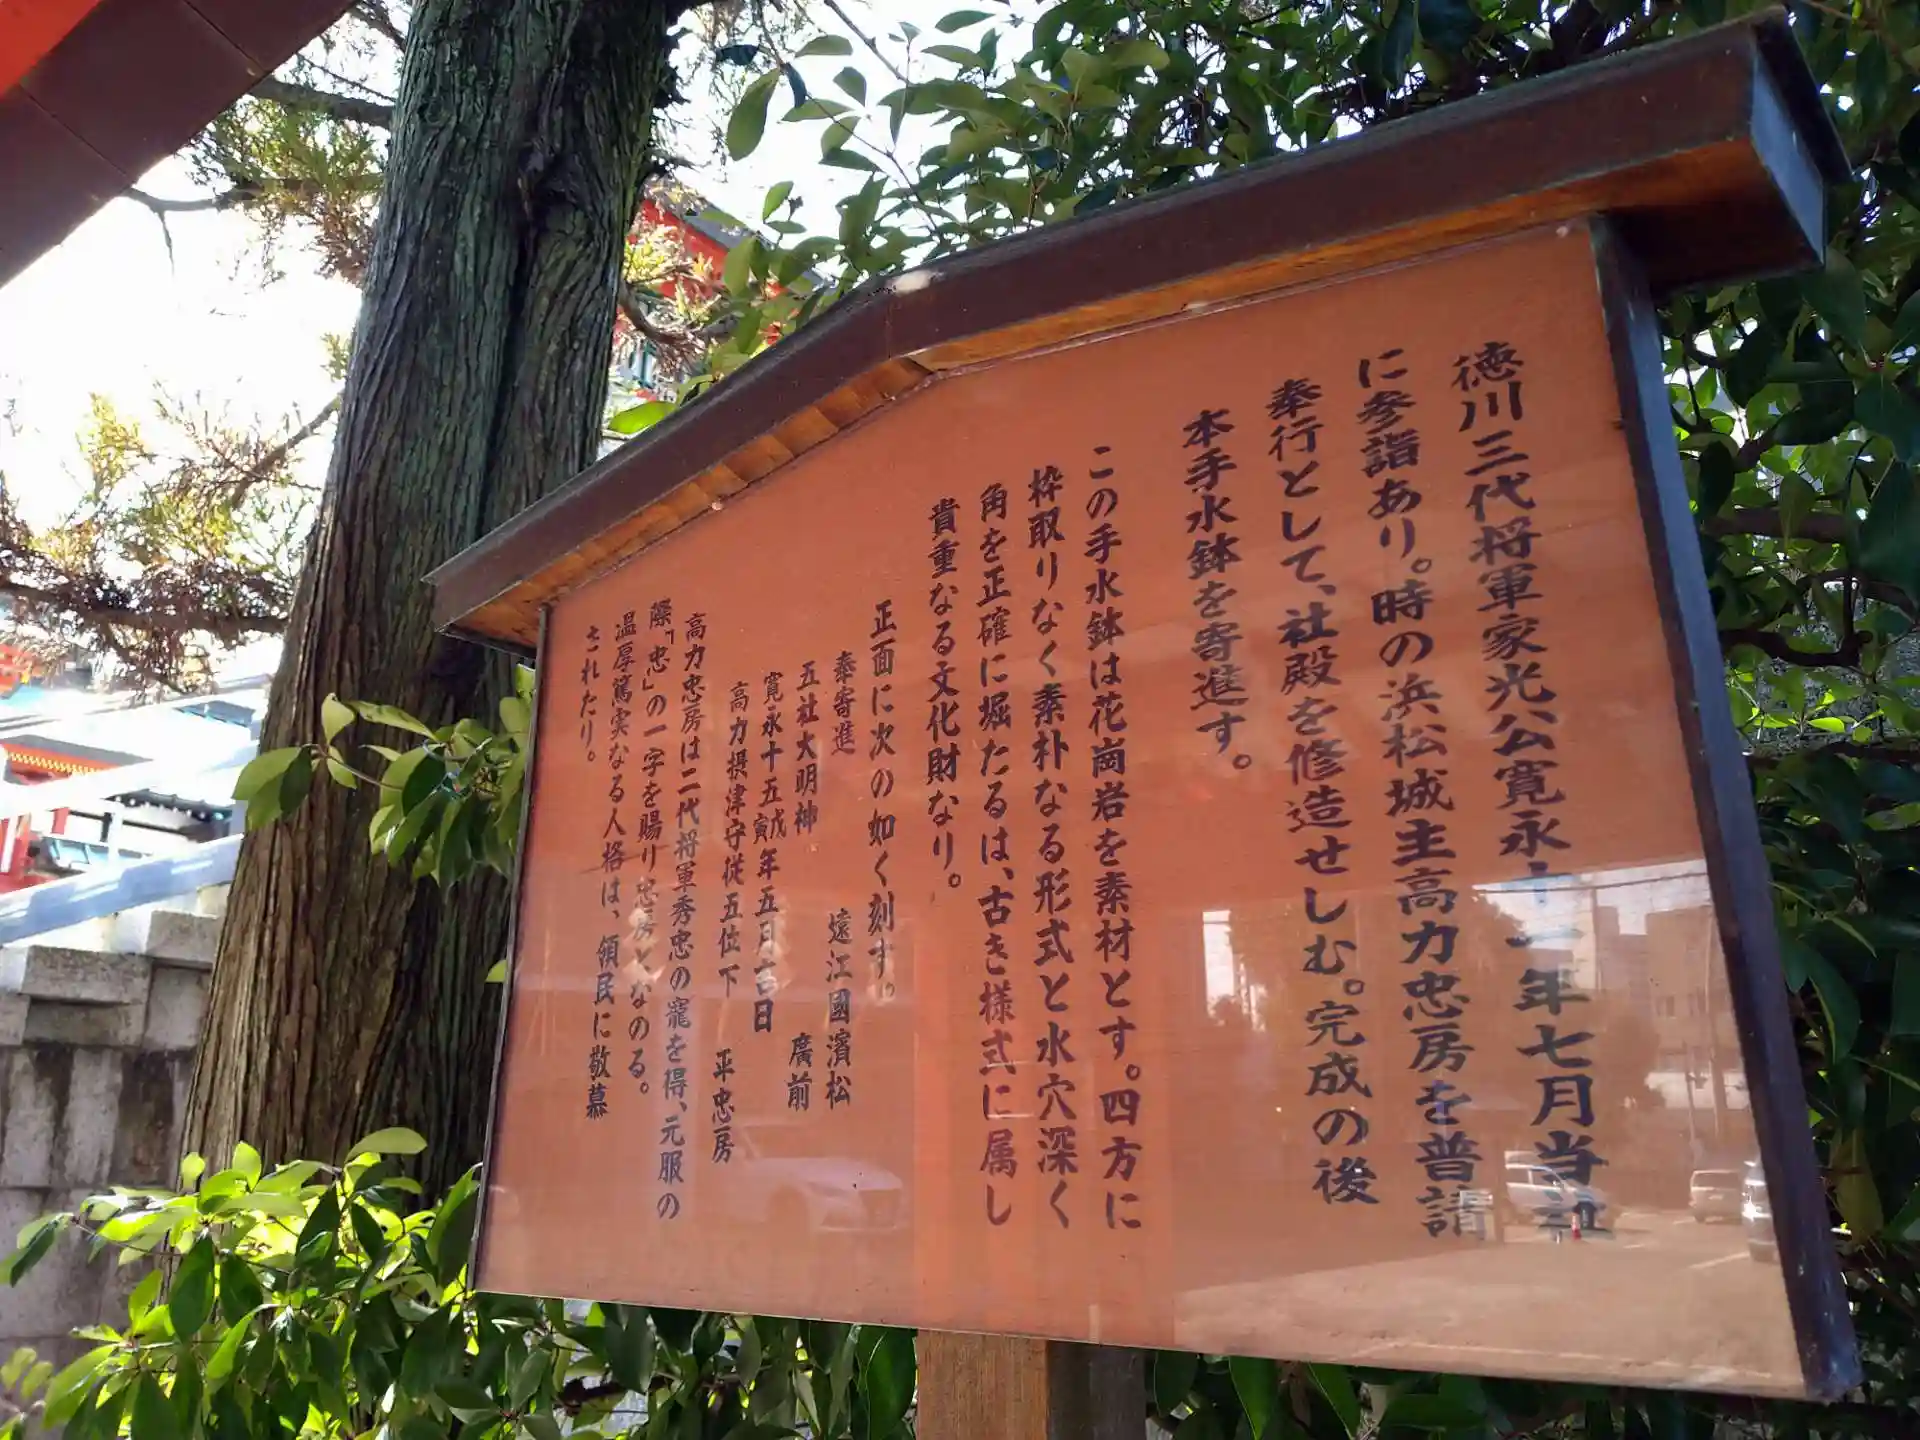 徳川三代将軍家光公寛永十一年七月当社
に参詣あり。時の浜松城主高力忠房を普請
奉行として、社殿を修造せしむ。完成の後
本手水鉢を寄進す。
この手水鉢は花崗岩を素材とす。四方に
枠取りなく素朴なる形式と水穴深く
角を正確に堀たるは、古き様式に属し
貴重なる文化財なり。
正面に次の如く刻す。
奉寄進 遠江國濱松
五社大明神 廣前
寛永十五戊寅年五月吉日
高力摂津守従五位下 平忠房
高力忠房は二代将軍秀忠の寵を得、元服の
際「忠」の一字を賜り忠房となのる。
温厚篤実なる人格は、領民に敬慕
されたり。